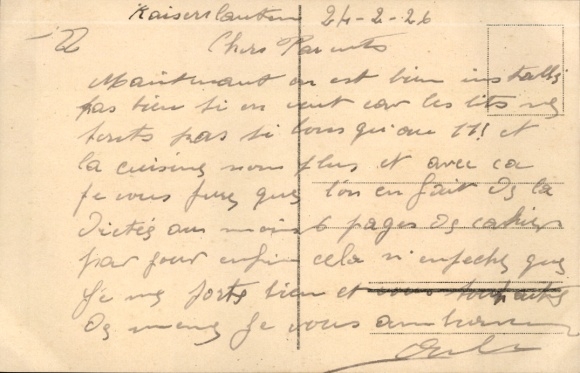 Kaiserslautern 24-2-26
Chers Parents
Maintenant on est bien installé
pas bien si on veut car les lits ne
sonts pas si bons qu'au 17! et
la cuisine nom plus et avec ca
je vous jure que l'on en fait de la
dictée au moins 6 pages de cahier
par jour enfin cela n'empeche que
je me porte bien et
de meme je vous